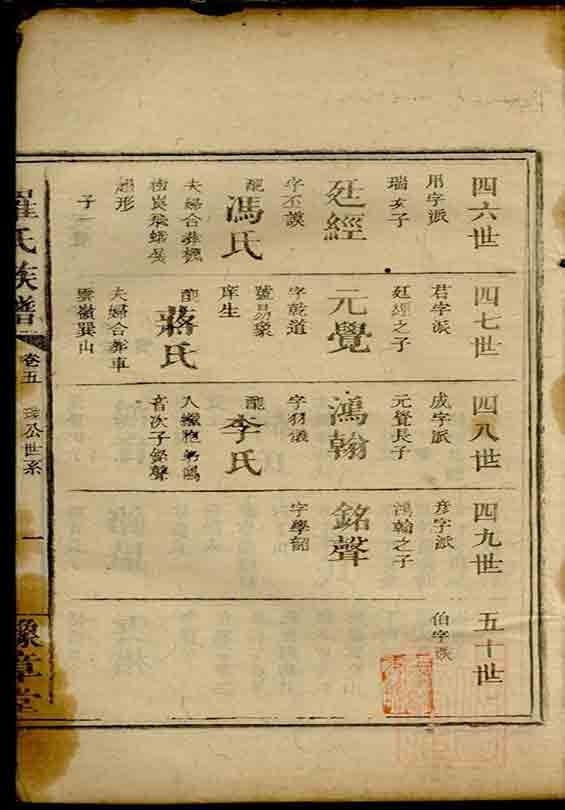 四六世
用字派
廷經
字丕謨
配
馮氏
夫婦合葬楓
形
子一
四七世
君字派
廷經之子
元覺
字乾道
庠生
配
蔣氏
夫婦合葬車
雲嶺巽山
四八世
成字派
元覺長子
鴻翰
字羽儀
配
李氏
音次子銘聲
四九世
彦字派
鴻翰之子
銘聲
字學韶
五十世
伯字派
羅氏族譜
卷五
公世系
一
豫章堂